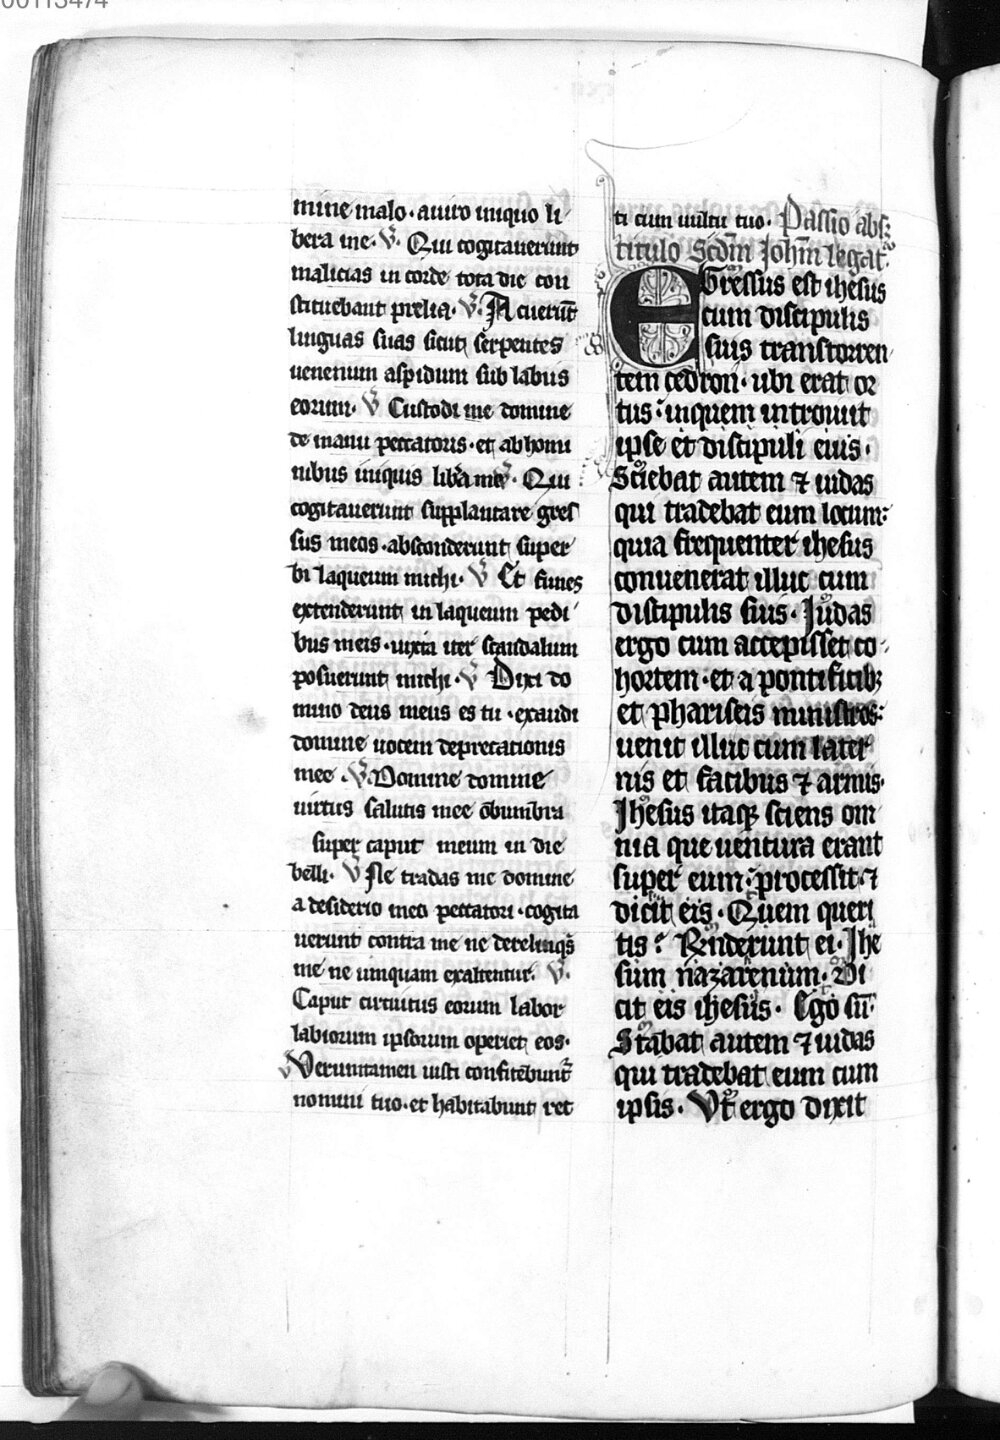 00113474
mine malo · a uiro iniquo li
bera me · V̵. Qui cogitauerunt
malicias in corde tota die con
stituebant prelia · V̵. Acuerūt
linguas suas sicut serpentes
uenenum aspidum sub labiis
eorum · V̵ Custodi me domine
de manu peccatoris · et ab homi
nibus iniquis libera me V̵. Qui
cogitauerunt supplantare gres
sus meos · absconderunt super
bi laqueum michi · V̵ Et funes
extenderunt in laqueum pedi
bus meis · iuxta iter scandalum
posuerunt michi · V̵ Dixi do
mino deus meus es tu · exaudi
domine uocem deprecationis
mee · V̵. Domine domine
uirtus salutis mee obumbra
super caput meum in die
belli · V̵ Ne tradas me domine
a desiderio meo peccatori · cogita
uerunt contra me ne derelinqs
me ne umquam exaltentur. V̵.
Caput circuitus eorum labor
labiorum ipsorum operiet eos ·
Veruntamen iusti confitebunt᷑
nomini tuo · et habitabunt rec
ti cum uultu tuo · Passio absq3
titulo Scdm̄ Johm̄ legat᷑
EGressus est ihesus
cum discipulis
suis trans torren
tem cedron · ubi erat or
tus · in quem introiuit
ipse et discipuli eius ·
Sciebat autem ⁊ iudas
qui tradebat eum locum:
quia frequenter ihesus
conuenerat illuc cum
discipulis suis · Judas
ergo cum accepisset co
hortem · et a pontificib3
et phariseis ministros:
uenit illuc cum later
nis et facibus ⁊ armis ·
Jhesus itaq3 sciens om
nia que uentura erant
super eum · processit · ⁊
dicit eis · Quem queri
tis? Rn̄derunt ei · Jhe
sum nazarenum · Di
cit eis ihesus · Ego sū ·
Stabat autem ⁊ iudas
qui tradebat eum cum
ipsis · Vt ergo dixit